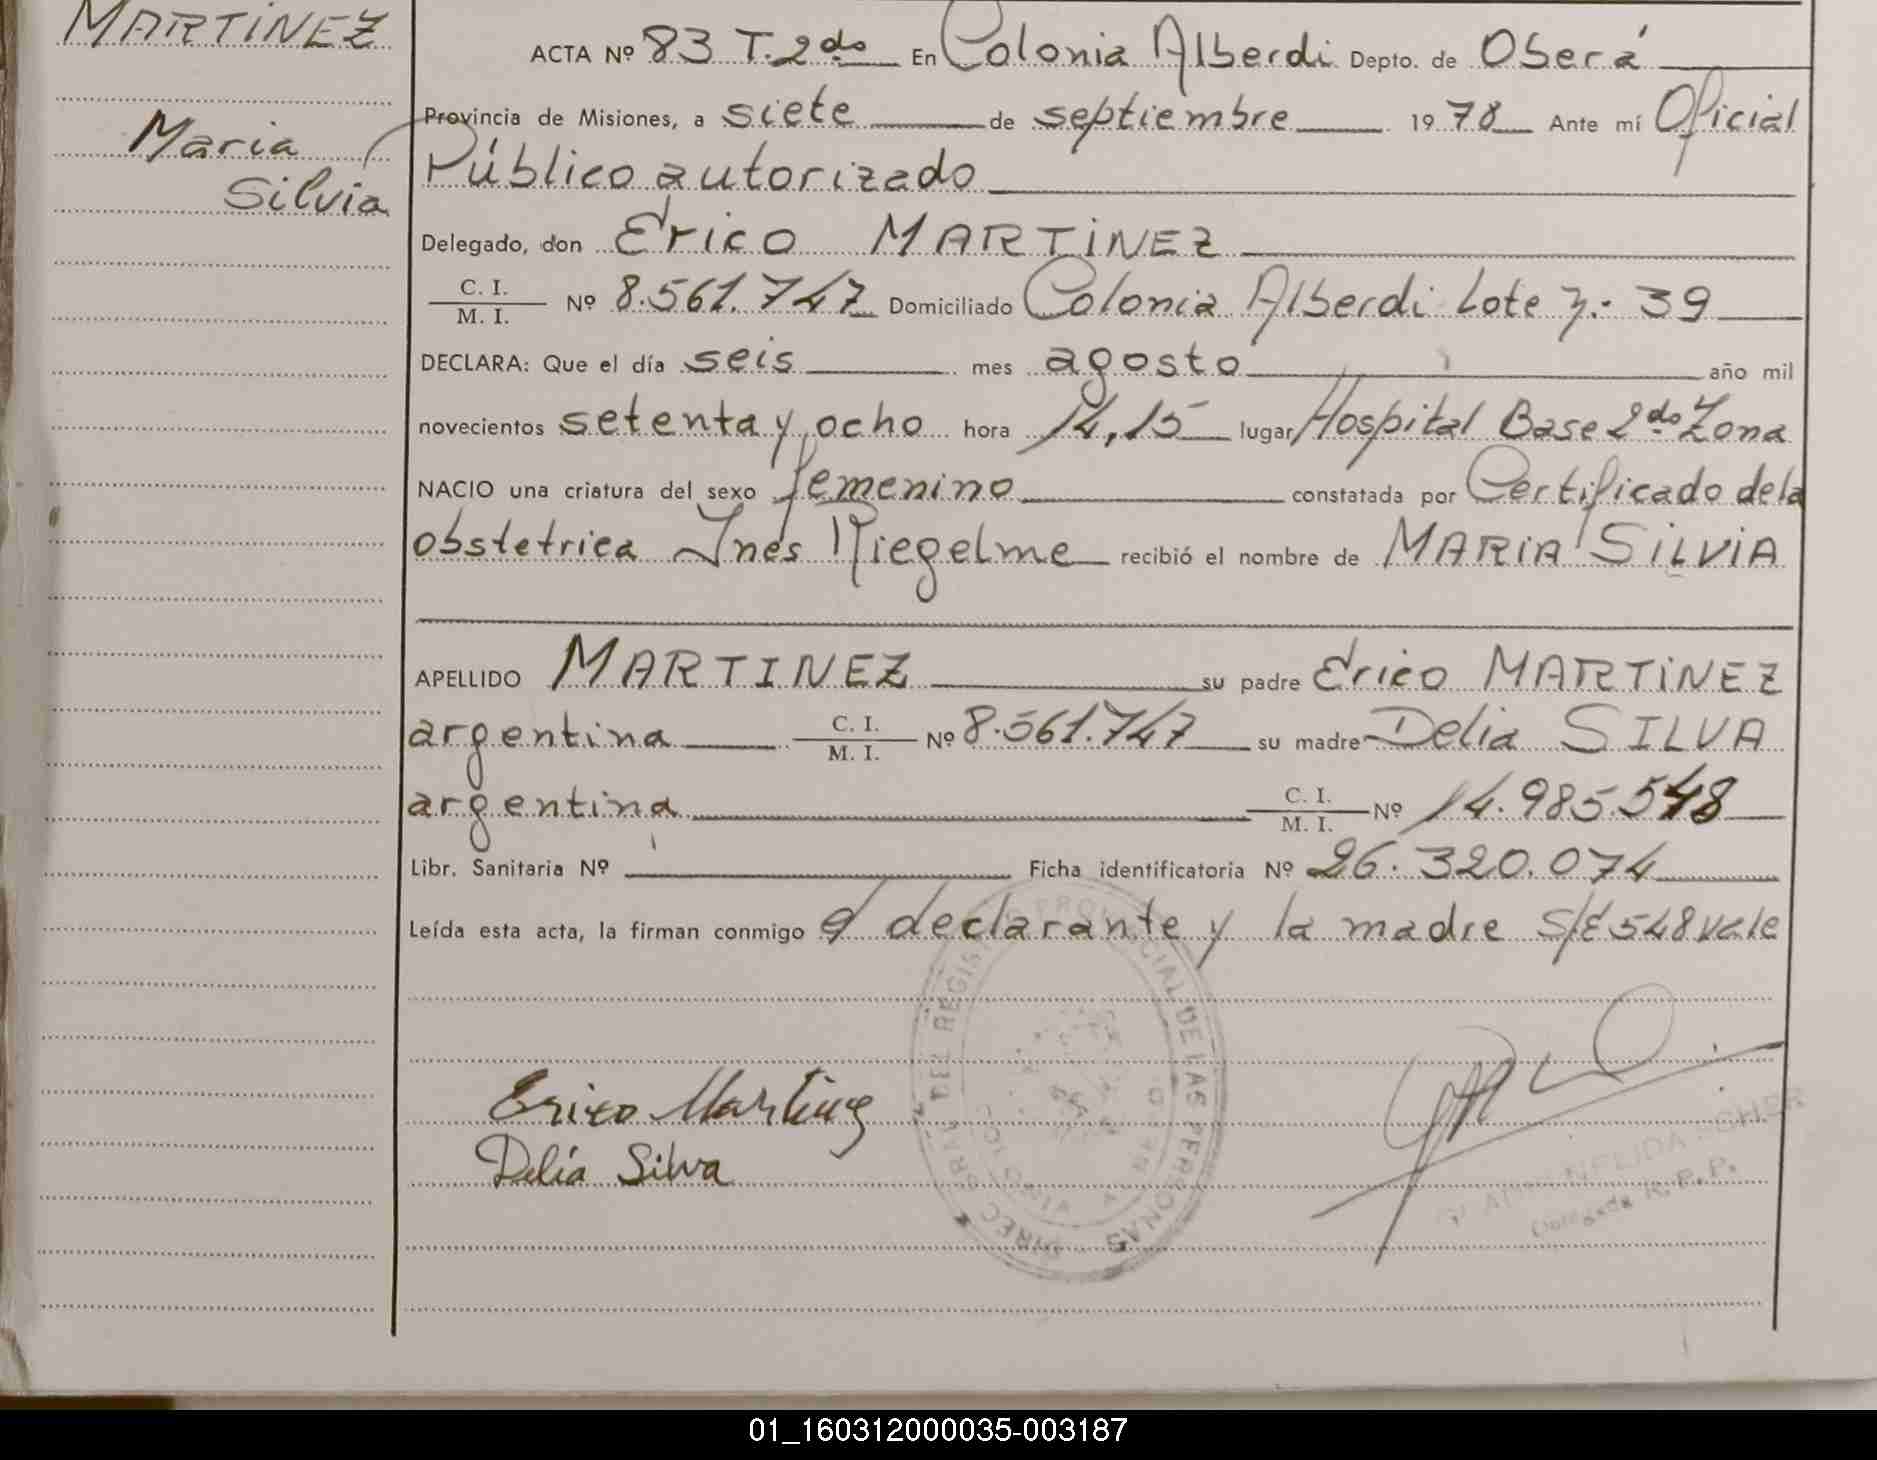 MARTINEZ
Maria
Silvia
ACTA Nº 83 T. 2do En Colonia Alberdi Depto. de Oberá
Provincia de Misiones, a siete de septiembre 1978 Ante mí Oficial
Público autorizado
Delegado, don Erico MARTINEZ
C. I. / M. I. Nº 8.561.747 Domiciliado Colonia Alberdi Lote 39
DECLARA: Que el día seis mes agosto año mil
novecientos setenta y ocho hora 14,15 lugar Hospital Base 2do Zona
NACIO una criatura del sexo femenino constatada por Certificado de la
obstetrica Inés recibió el nombre de MARIA SILVIA
APELLIDO MARTINEZ su padre Erico MARTINEZ
argentina C. I. / M. I. Nº 8.561.747 su madre Delia SILVA
argentina C. I. / M. I. Nº 14.985.548
Libr. Sanitaria Nº Ficha identificatoria Nº 26.320.074
Leída esta acta, la firman conmigo el declarante y la madre S/E 548 vale
Erico Martinez
Delia Silva
PROVINCIAL DE LAS PERSONAS
Delegada R. P. P.
01_160312000035-003187